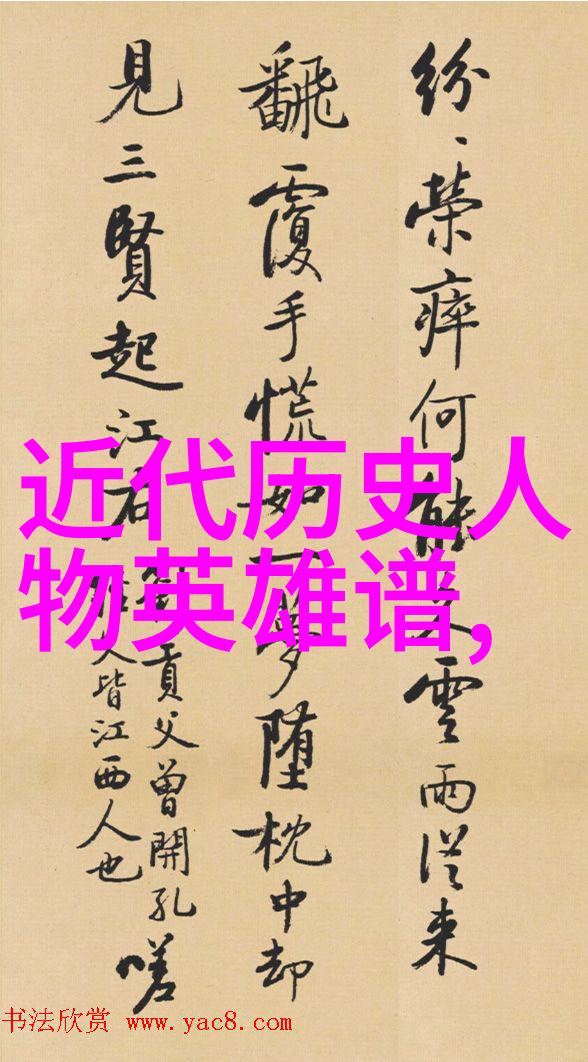 紛、榮瘁何能雲雨從来
飜覆手慌如一夢墮枕中却
見三賢起江右
貢父曾開孔
人皆江西人也
嗟
近代历史人
物英雄谱,
书法欣赏 www.yac8.com